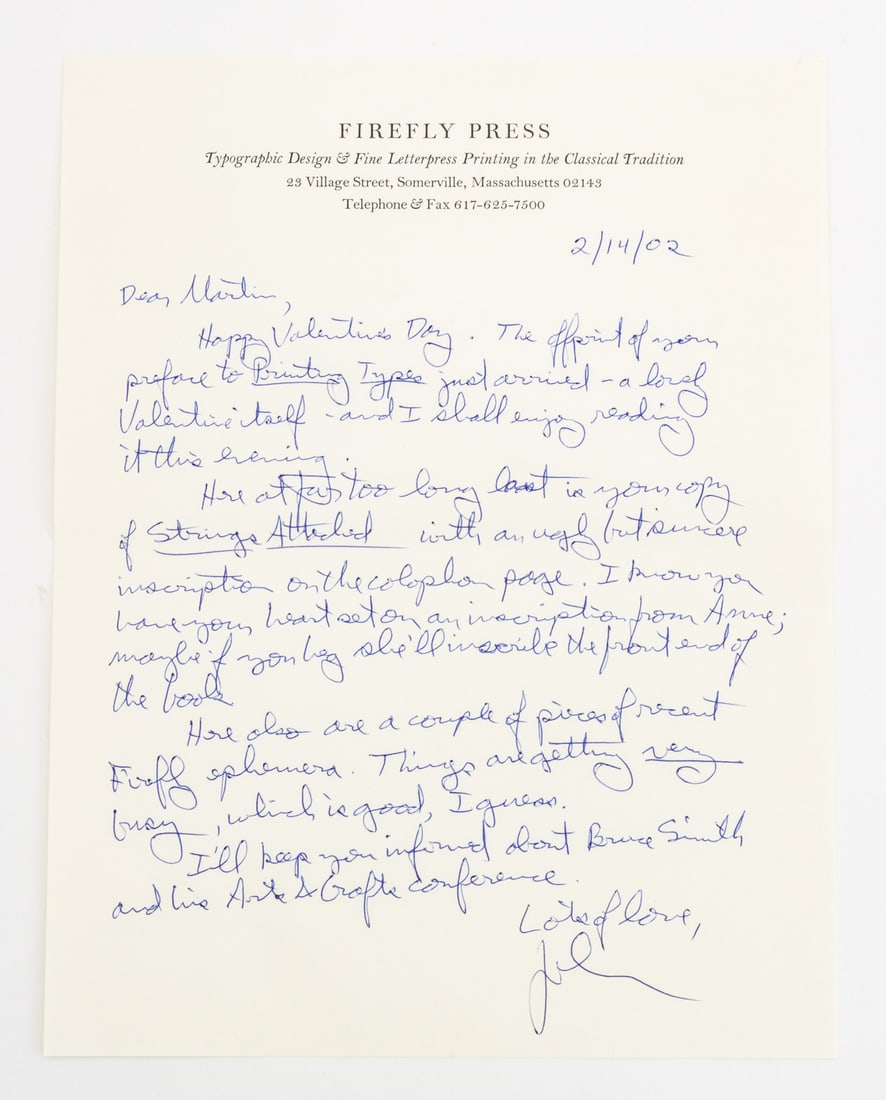 FIREFLY PRESS
Typographic Design & Fine Letterpress Printing in the Classical Tradition
23 Village Street, Somerville, Massachusetts 02143
Telephone & Fax 617-625-7500
2/14/02
Dear Martin,
Happy Valentine's Day. The offprint of your
preface to Printing Types just arrived - a lovely
Valentine itself - and I shall enjoy reading
it this evening.
Here at far too long last is your copy
of Strings Attached with an ugly but sincere
inscription on the colophon page. I know you
have your heart set on an inscription from Anne;
maybe if you beg she'll inscribe the front end of
the book.
Here also are a couple of pieces of recent
Firefly ephemera. Things are getting very
busy, which is good, I guess.
I'll keep you informed about Bruce Smith
and his Arts & Crafts conference.
Lots of love,
John